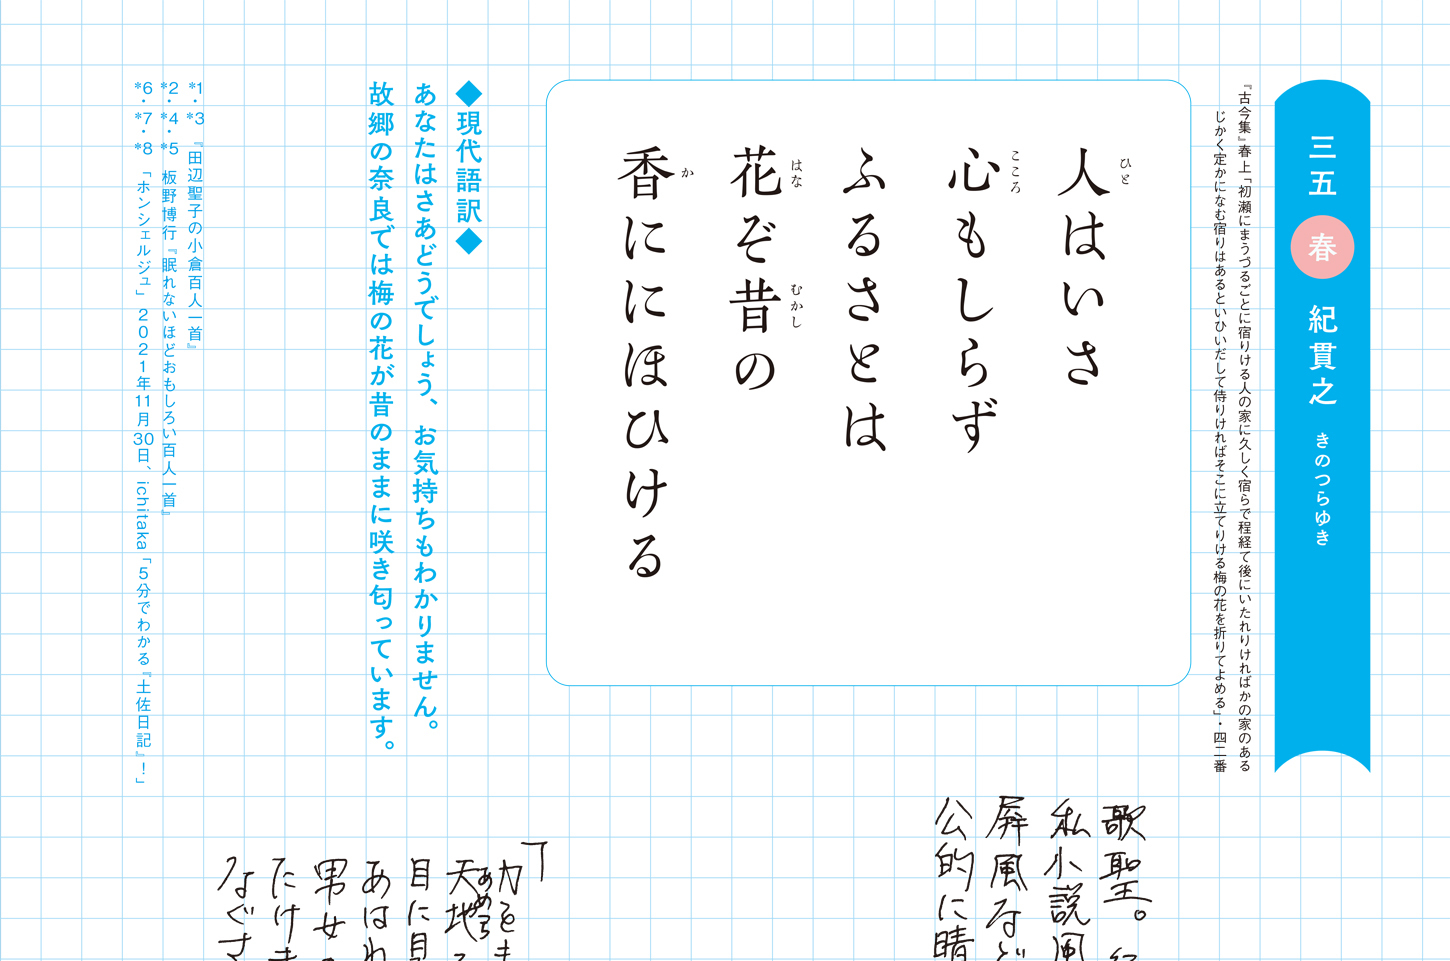 三五 春 紀貫之 きのつらゆき
『古今集』春上「初瀬にまうづるごとに宿りける人の家に久しく宿らで程経て後にいたれりければかの家のある
じかく定かになむ宿りはあるといひいだして侍りければそこに立てりける梅の花を折りてよめる」・四二番
人はいさ
ひと
心もしらず
こころ
ふるさとは
花ぞ昔の
はな むかし
香ににほひける
か
◆現代語訳◆
あなたはさあどうでしょう、お気持ちもわかりません。
故郷の奈良では梅の花が昔のままに咲き匂っています。
*1・*3 『田辺聖子の小倉百人一首』
*2・*4・*5 板野博行『眠れないほどおもしろい百人一首』
*6・*7・*8 「ホンシェルジュ」2021年11月30日、ichitaka「5分でわかる『土佐日記』！」
歌聖。
私小説風
屏風など
公的に晴
「
力をも
天地
あめつち
目に見
あはれ
男女
たけき
なぐさ